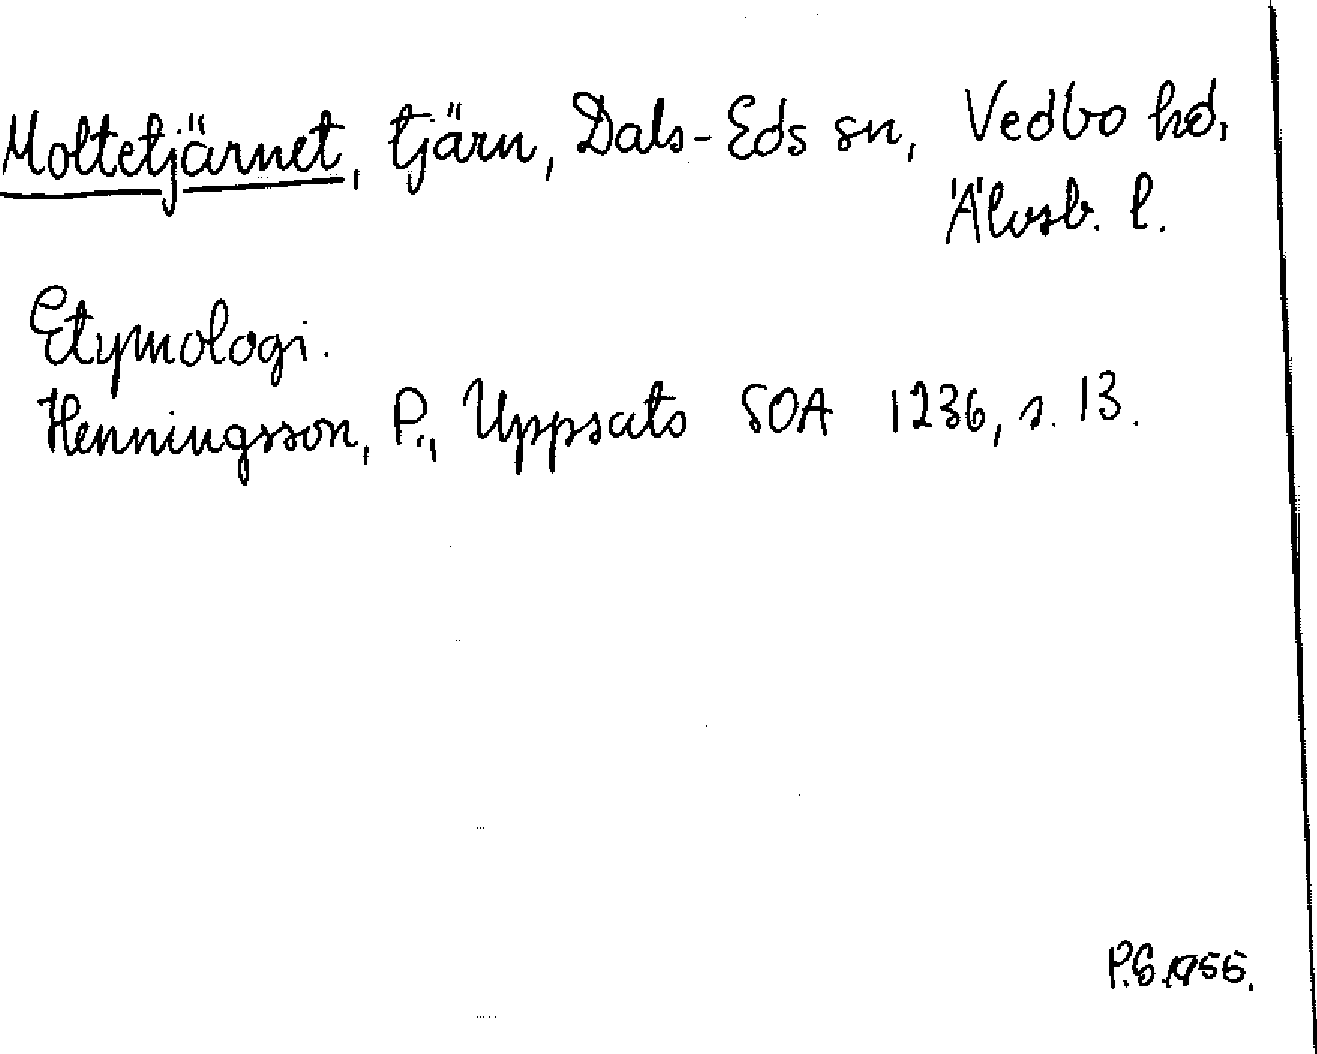 Moltetjärnet, tjärn, Dals-Eds sn, Vedbo hd,
Älvsb. l.
Etymologi.
Henningsson, P., Uppsats SOA 1236, s. 13.
P.S. 1955.